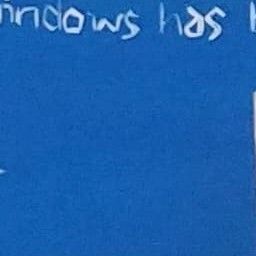 indows has